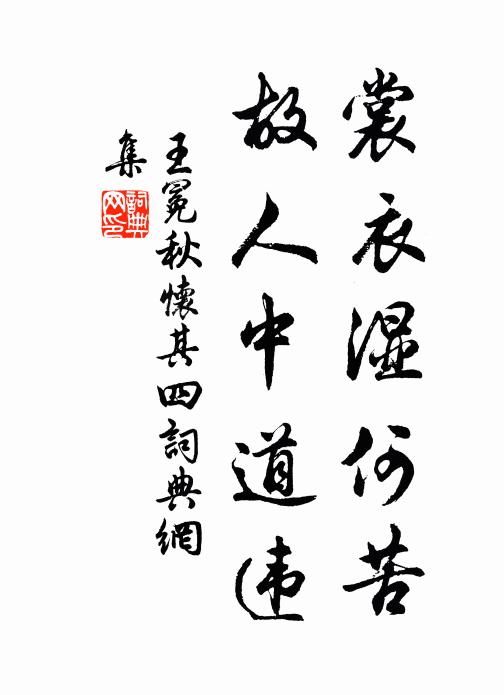 裳衣湿何苦
故人中道违
王冕秋懷其四詞典網
集
詞典
网印